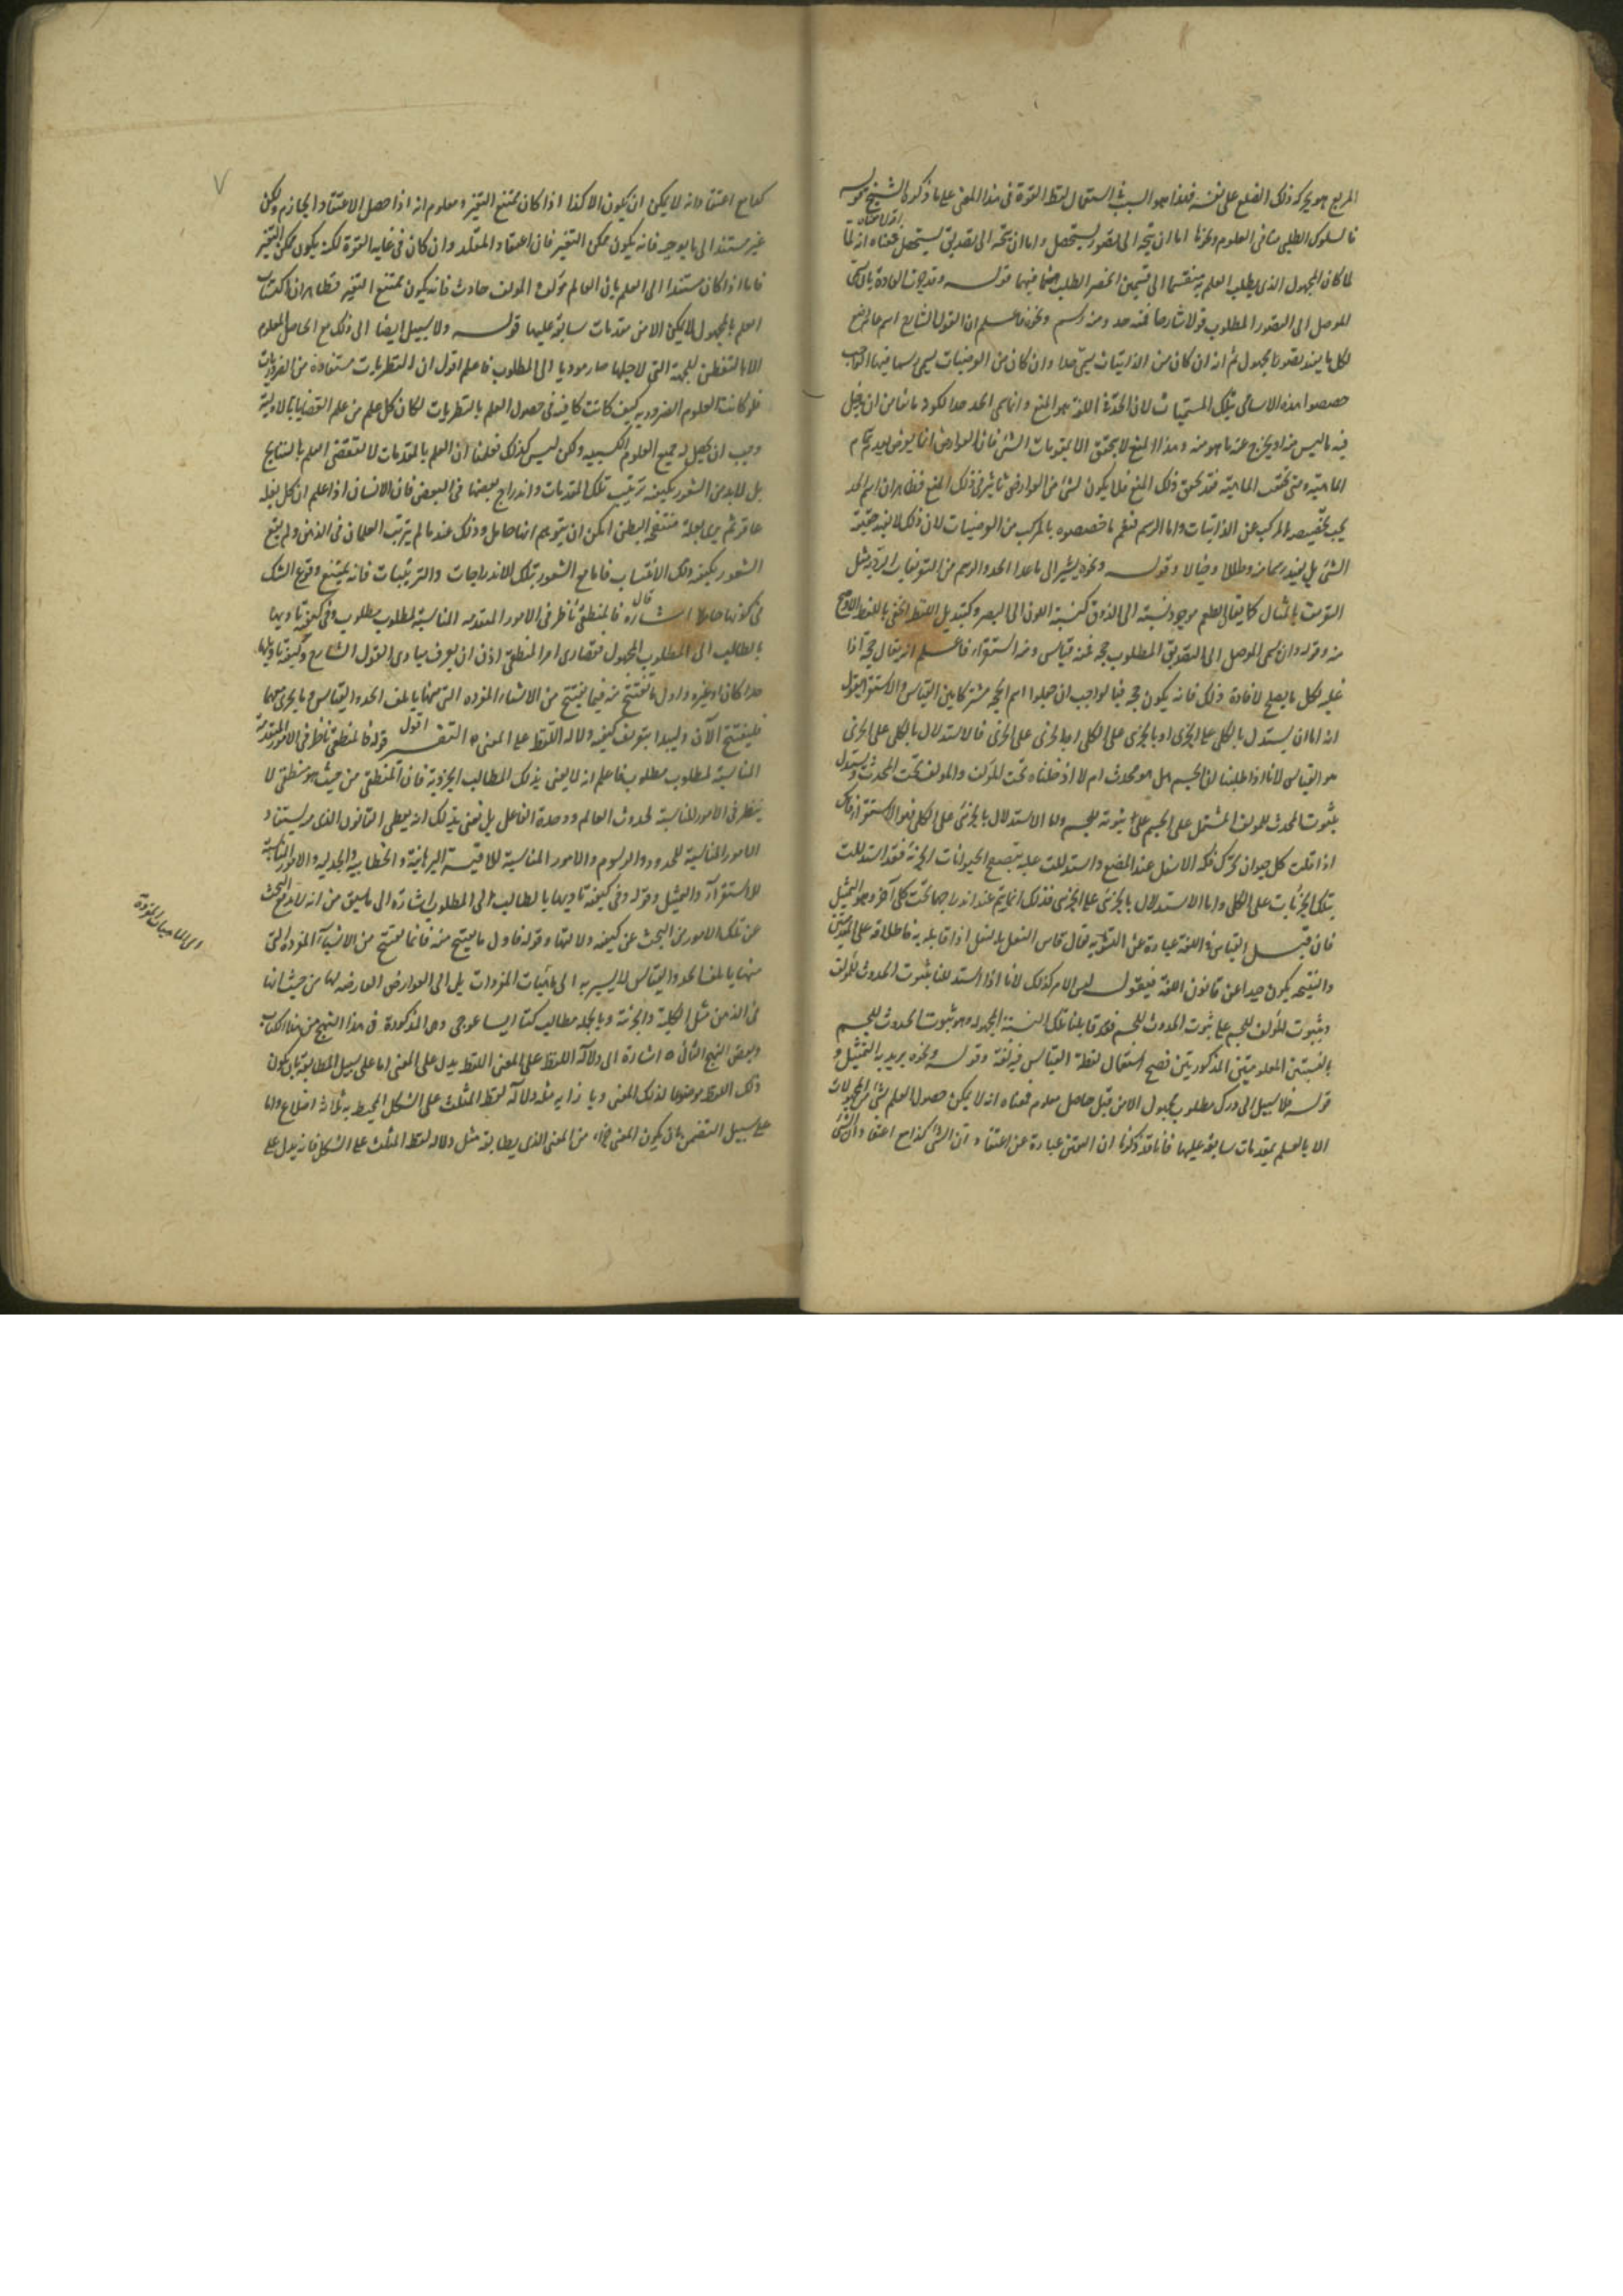 المربع هو يحركه ذلك الضلع على نفسه فهذا هو السبب في استعمال لفظ القوة في هذا المعنى على ما ذكره الشيخ قوله
فالسلوك الطلبي منا في العلوم ونحوها اما ان يتجه الى تصور يستحصل واما ان يتجه الى تصديق يستحصل اقول معناه انه لما
لما كان المجهول الذي يطلب العلم به منقسما الى قسمين انحصر الطلب ايضا فيهما قوله وقد جرت العادة بان يسمى
الموصل الى التصور المطلوب قولا شارحا فمنه حد ومنه رسم ونحوه فاعلم ان القول الشارح اسم عام وضع
لكل ما يفيد تصور المجهول ثم انه ان كان من الذاتيات يسمى حدا وان كان من العرضيات يسمى رسما فيها
خصصوا هذه الاسامي بتلك المسميات لان الحد في اللغة هو المنع وانما سمي الحد حدا لكونه مانعا من ان يدخل
فيه ما ليس منه او يخرج عنه ما هو منه وهذا المنع لا يتحقق الا بمقومات الشئ فان العوارض انما يعرض بعد تمام
الماهية ومتى تحققت الماهية فقد تحقق ذلك المنع فلا يكون لشئ من العوارض تاثير في ذلك المنع فظاهر ان اسم الحد
يجب تخصيصه بالمركب عن الذاتيات واما الرسم فنعم ما خصصوه بالمركب من العرضيات لان ذلك لا يفيد حقيقة
الشئ بل يفيد رسما منه وظلالا وخيالا وقوله ونحوه يشير الى ما عدا الحد والرسم من التعريفات الردية مثل
التعريف بالمثال كما يقال الطعم موجود نسبته الى الذوق كنسبة اللون الى البصر وكتبديل اللفظ الخفي باللفظ الاوضح
منه وقوله وان يسمى الموصل الى التصديق المطلوب حجة فمنه قياس ومنه استقراء فاعلم انه يقال حجة اذا
غلبه لكل ما يصلح لافادة ذلك فانه يكون حجة فبالواجب ان جعلوا اسم الحجة مشتركا بين القياس والاستقراء فنقول
انه اما ان يستدل بالكلي على الجزئي او بالجزئي على الكلي او بالجزئي على الجزئي فالاستدلال بالكلي على الجزئي
هو القياس لانا اذا طلبنا ان الجسم هل هو محدث ام لا ادخلناه تحت المؤلف والمؤلف تحت المحدث ويستدل
بثبوت المحدث للمؤلف المشتمل على الجسم على ثبوته للجسم واما الاستدلال بالجزئي على الكلي فهو الاستقراء فانك
اذا قلت كل حيوان يحرك فكه الاسفل عند المضغ واستدللت عليه بتصفح الحيوانات الجزئية فقد استدللت
بتلك الجزئيات على الكلي واما الاستدلال بالجزئي على الجزئي فذلك انما يتم عند اندراجهما تحت كلي آخر وهو التمثيل
فان قيل القياس في اللغة عبارة عن التسوية يقال قاس النعل بالنعل اذا قابله به فاطلاقه على المقدمتين
والنتيجة يكون حيدا عن قانون اللغة فنقول ليس الامر كذلك لانا اذا استدللنا بثبوت الحدوث للمؤلف
وبثبوت المؤلف للجسم على ثبوت الحدوث للجسم فقد قابلنا تلك النسبة المجهولة وهو ثبوت الحدوث للجسم
بالنسبتين المعلومتين المذكورتين فصح استعمال لفظة القياس فيه لغة وقوله ونحوه يريد به التمثيل و
قوله فلا سبيل الى درك مطلوب مجهول الا من قبل حاصل معلوم فمعناه انه لا يمكن حصول العلم بشئ من المجهولات
الا بالعلم بمقدمات سابقة عليها فانا قد ذكرنا ان اليقين عبارة عن اعتقاد ان الشئ كذا مع اعتقاد ان الشئ
كذا مع اعتقاد انه لا يمكن ان يكون الا كذا اذا كان ممتنع التغير ومعلوم انه اذا حصل الاعتقاد الجازم ولكن
غير مستند الى ما يوجبه فانه يكون ممكن التغير فان اعتقاد المقلد وان كان في غاية القوة لكنه يكون ممكن التغير
فاما اذا كان مستندا الى العلم بان العالم مؤلف والمؤلف حادث فانه يكون ممتنع التغير فظاهر ان اكتساب
العلم بالمجهول لا يمكن الا من مقدمات سابقة عليها قوله ولا سبيل ايضا الى ذلك مع الحاصل المعلوم
الا بالتفطن للجهة التي لاجلها صار موديا الى المطلوب فاعلم اقول ان النظريات مستفادة من الضروريات
فلو كانت العلوم الضرورية كيف كانت كافية في حصول العلم بالنظريات لكان كل من علم القضايا الاولية
وجب ان يحصل له جميع العلوم الكسبية ولكن ليس كذلك فعلمنا ان العلم بالمقدمات لا يقتضي العلم بالنتائج
بل لا بد من الشعور بكيفية ترتيب تلك المقدمات واندراج بعضها في البعض فان الانسان اذا علم ان كل بغلة
عاقر ثم يرى بغلة منتفخة البطن امكن ان يتوهم انها حامل وذلك عند ما لم يترتب العلمان في الذهن ولم يقع
الشعور بكيفية ذلك الانتساب فاما مع الشعور بتلك الاندراجات والترتيبات فانه يمتنع وقوع الشك
في كونها حاملا اشارة قال فالمنطقي ناظر في الامور المتقدمة المناسبة لمطلوب مطلوب وفي كيفية تاديها
بالطالب الى المطلوب المجهول فقصارى امر المنطقي اذن ان يعرف مبادى القول الشارح وكيفية تاليفه
حدا كان او غيره واول ما يفتتح منه فيما يفتتح من الاشياء المفردة التي منها يتالف الحد والقياس وما يجري مجراهما
فليفتتح الآن وليبدا بتعريف كيفية دلالة اللفظ على المعنى التفسير اقول قوله فالمنطقي ناظر في الامور المتقدمة
المناسبة لمطلوب مطلوب فاعلم انه لا يعنى بذلك المطالب الجزوية فان المنطقي من حيث هو منطقي لا
ينظر في الامور المناسبة لحدوث العالم ووحدة الفاعل بل نعنى بذلك انه يعطى القانون الذي منه يستفاد
الامور المناسبة للحدود والرسوم والامور المناسبة للاقيسة البرهانية والخطابية والجدلية والامور المناسبة
للاستقراء والتمثيل وقوله وفي كيفية تاديها بالطالب الى المطلوب اشارة الى ما سبق من انه لا بد مع البحث
عن تلك الامور من البحث عن كيفية دلالتها وقوله فاول ما يفتتح منه فانما يفتتح من الاشياء المفردة التي
منها يتالف الحد والقياس لا يشير به الى ماهيات المفردات بل الى العوارض العارضة لها من حيث انها
في الذهن مثل الكلية والجزئية وبالجملة مطالب كتاب ايساغوجي وهي المذكورة في هذا النهج من هذا الكتاب
وبعض النهج الثاني اشارة الى دلالة اللفظ على المعنى اللفظ يدل على المعنى اما على سبيل المطابقة بان يكون
ذلك اللفظ موضوعا لذلك المعنى وبازايه مثل دلالة لفظ المثلث على الشكل المحيط به ثلاثة اضلاع واما
على سبيل التضمن بان يكون المعنى جزءا من المعنى الذي يطابقه مثل دلالة لفظ المثلث على الشكل فانه يدل على